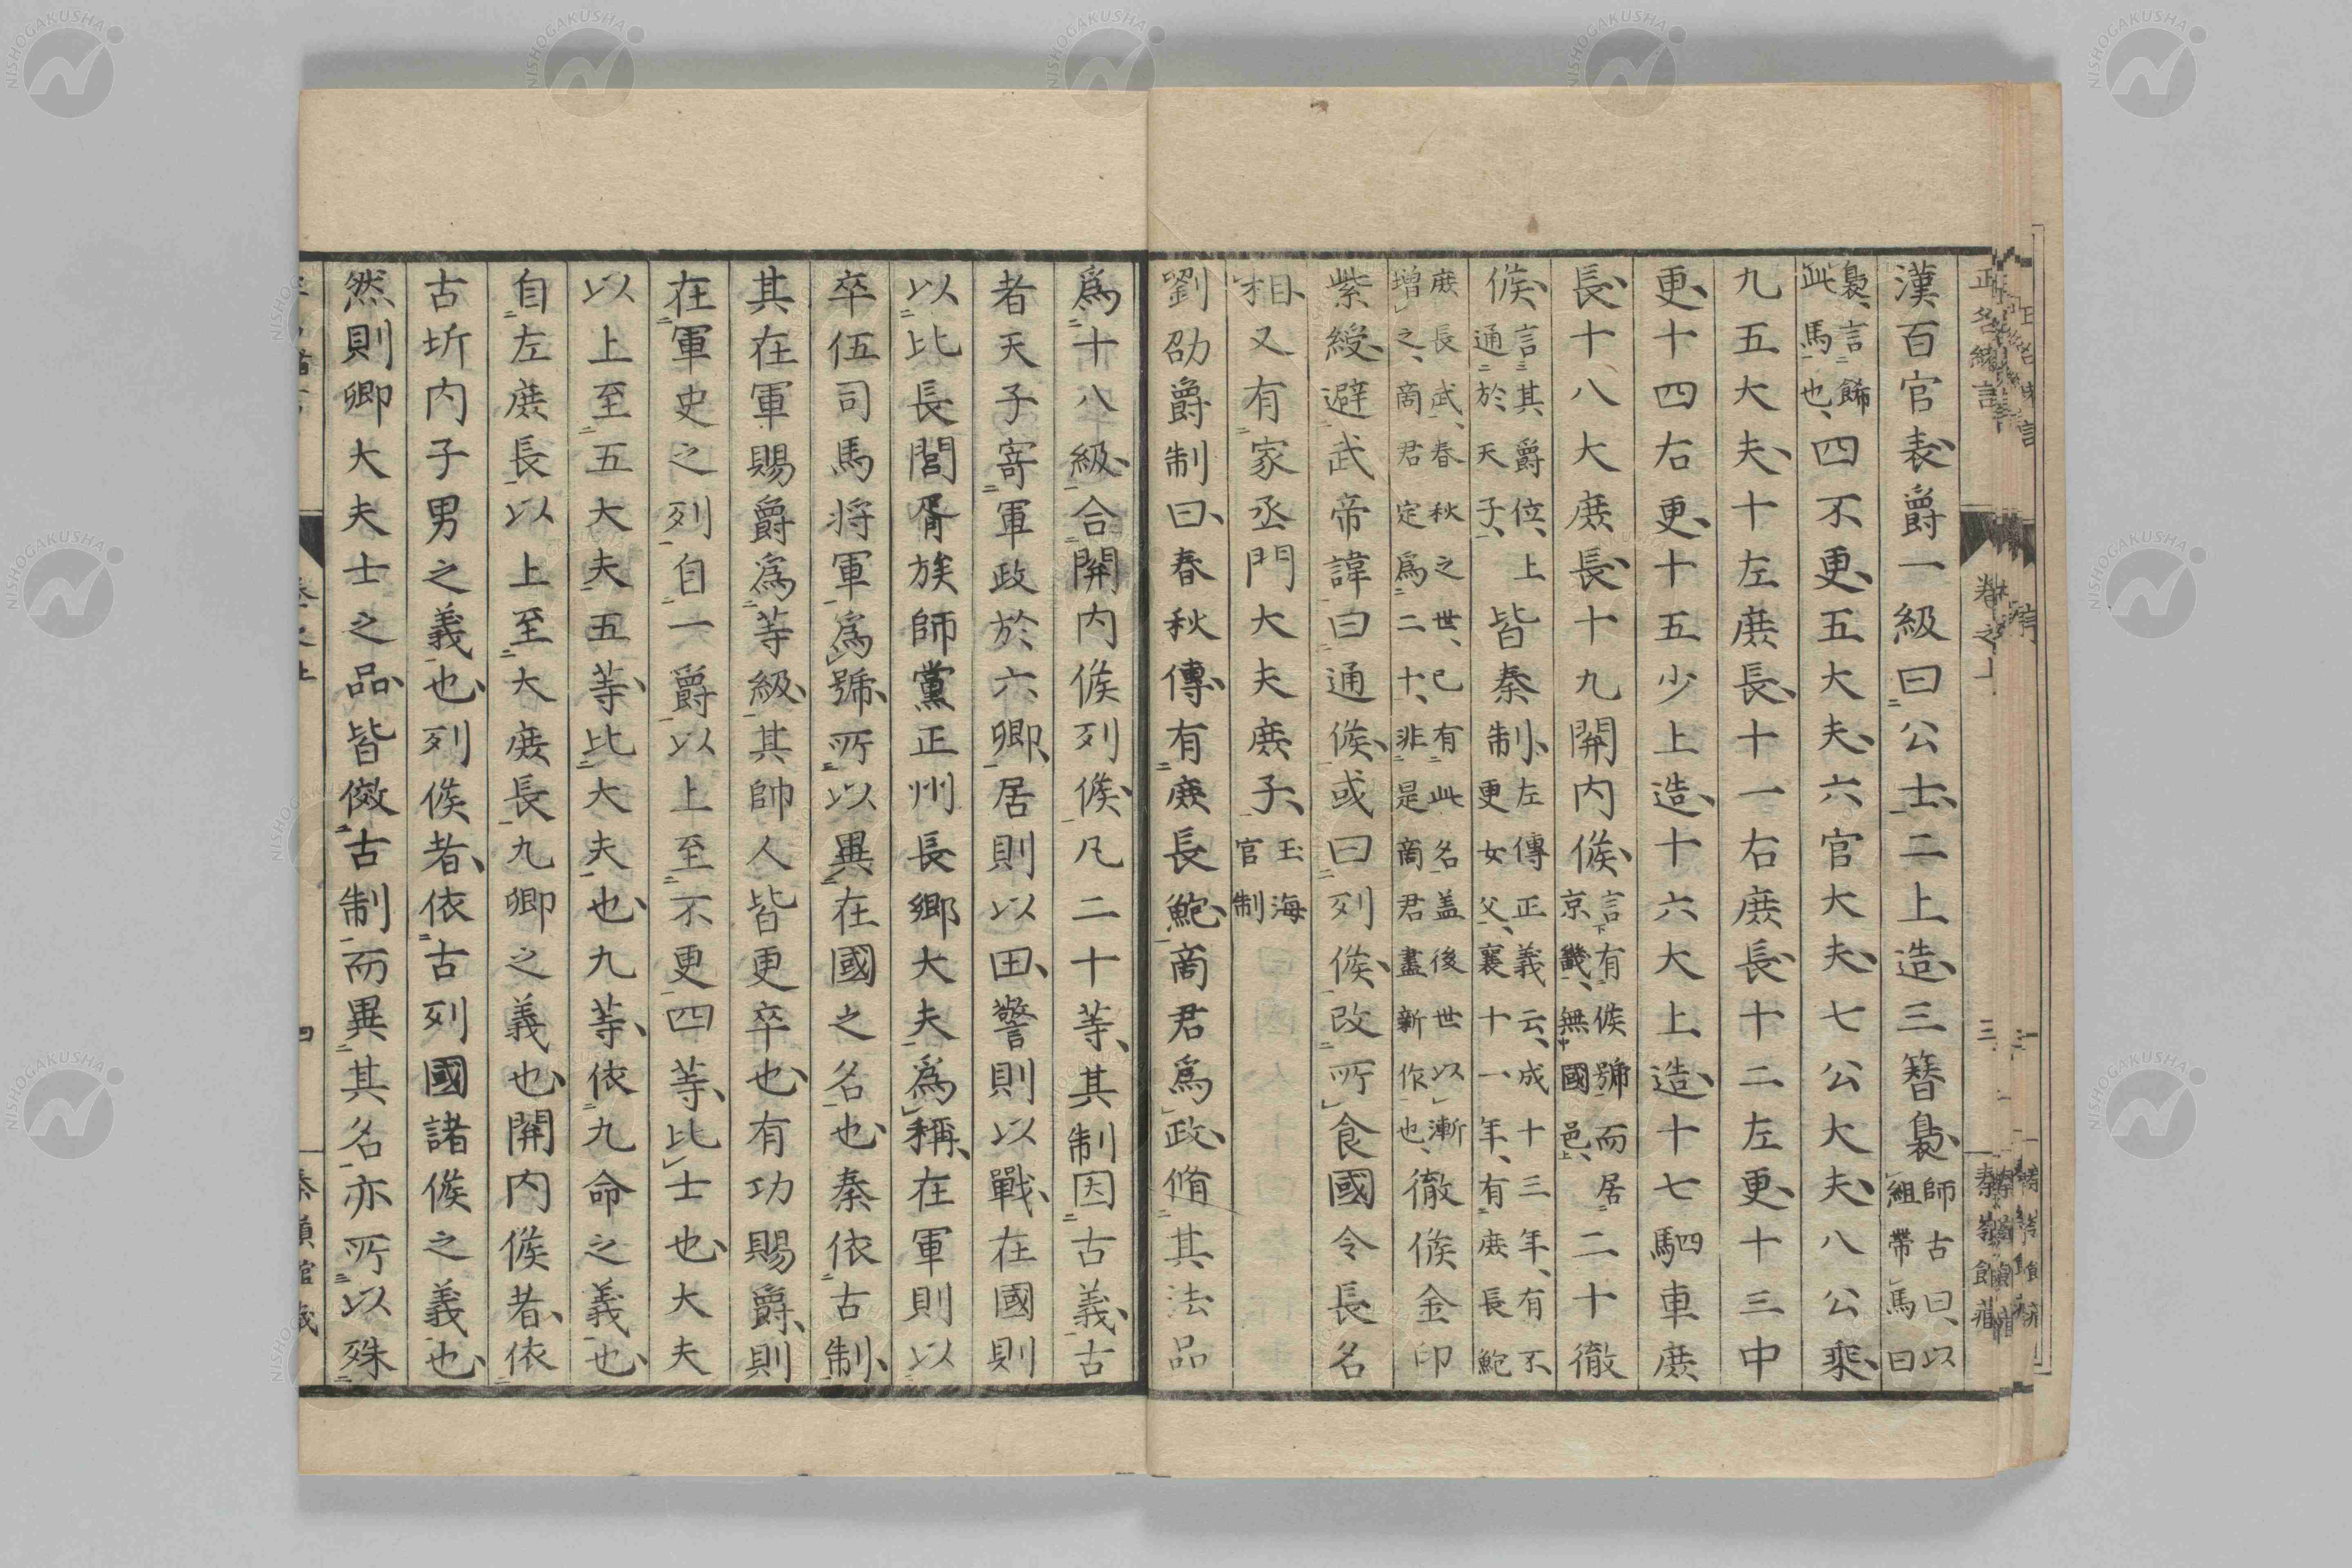 漢百官表爵一級曰公士二上造三簪裊師古曰以組帶馬曰
裊言飾此馬也四不更五大夫六官大夫七公大夫八公乘
九五大夫十左庻長十一右庻長十二左更十三中
更十四右更十五少上造十六大上造十七駟車庻
長十八大庻長十九關内侯言有侯號而居京畿無國邑二十徹
侯言其爵位上通於天子皆秦制左傳正義云成十三年有不更女父襄十一年有庻長鮑
庻長武春秋之世已有此名盖後世以漸增之商君定爲二十非是商君盡新作也徹侯金印
紫綬避武帝諱曰通侯或曰列侯改所食國令長名
相又有家丞門大夫庻子玉海官制
劉劭爵制曰春秋傳有庻長鮑商君爲政脩其法品
爲十八級合關内侯列侯凡二十等其制因古義古
者天子寄軍政於六卿居則以田警則以戰在國則
以比長閭胥族師黨正州長鄉大夫爲稱在軍則以
卒伍司馬将軍爲號所以異在國之名也秦依古制
其在軍賜爵爲等級其帥人皆更卒也有功賜爵則
在軍吏之列自一爵以上至不更四等比士也大夫
以上至五大夫五等比大夫也九等依九命之義也
自左庻長以上至大庻長九卿之義也關内侯者依
古圻内子男之義也列侯者依古列國諸侯之義也
然則卿大夫士之品皆倣古制而異其名亦所以殊